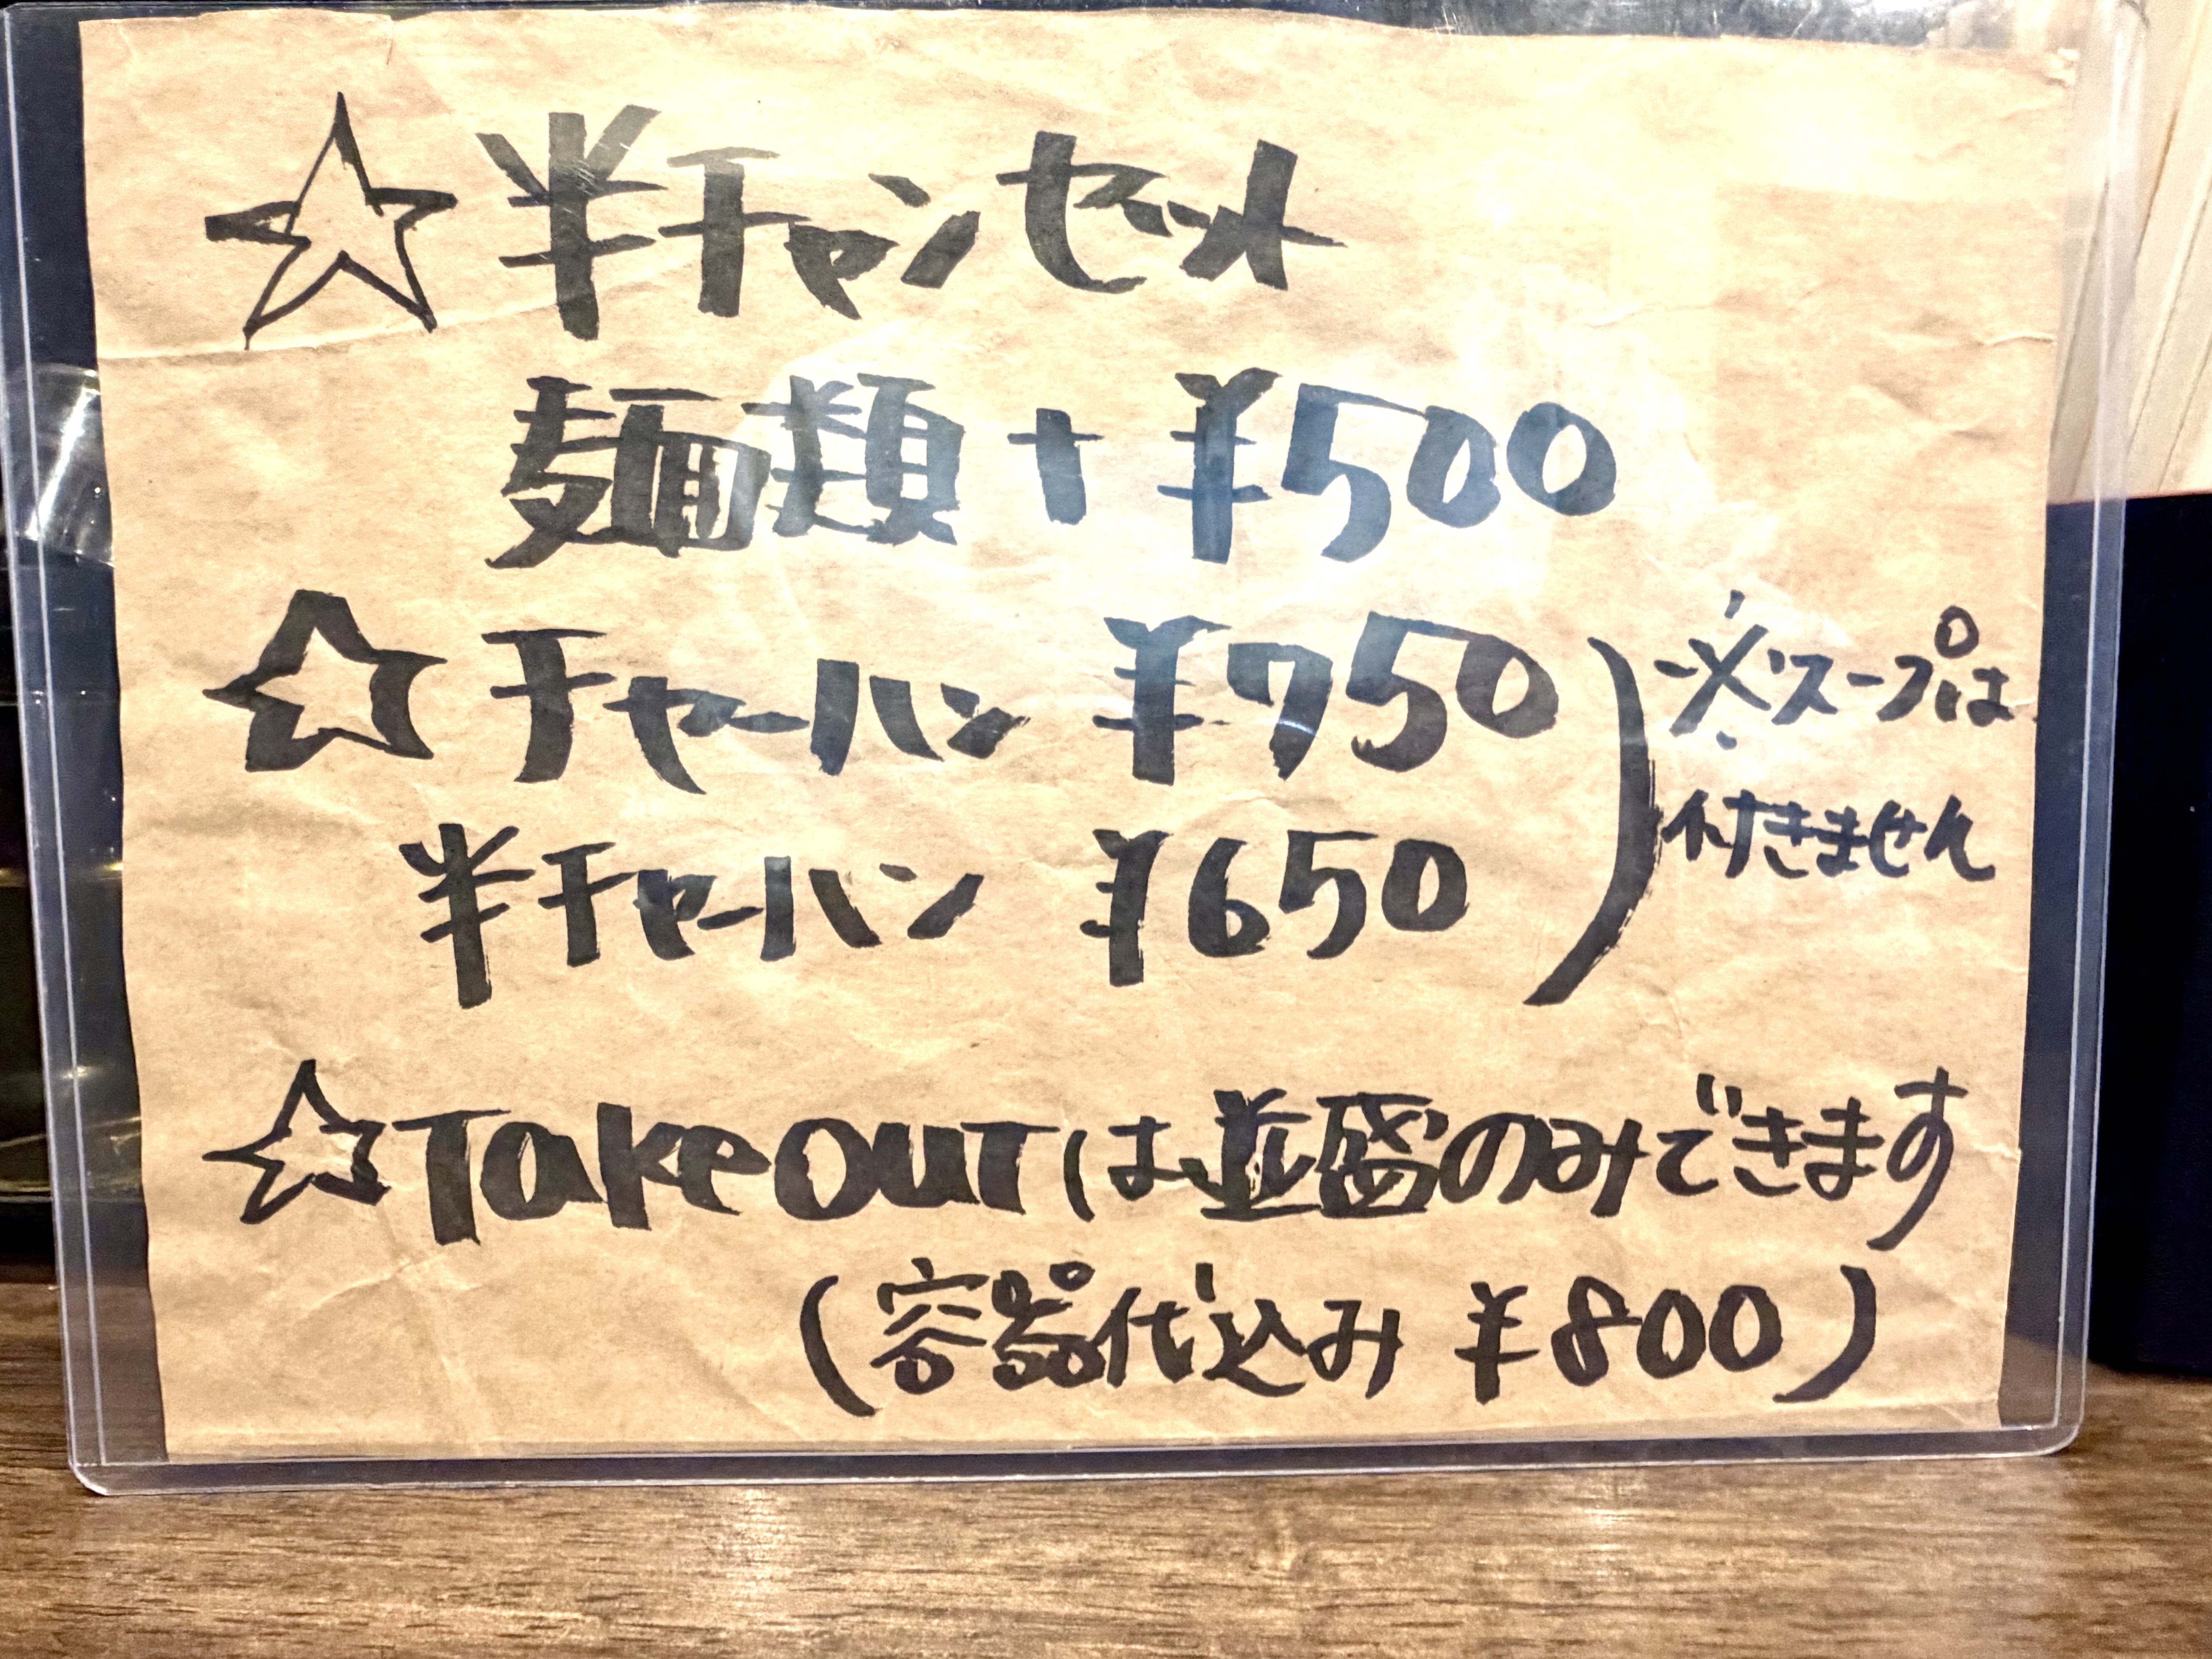 ☆半チャンセット
麺類+¥500
☆チャーハン ¥750
半チャーハン ¥650
※スープは
付きません
☆Takeoutは並盛のみできます
(容器代込み ¥800)